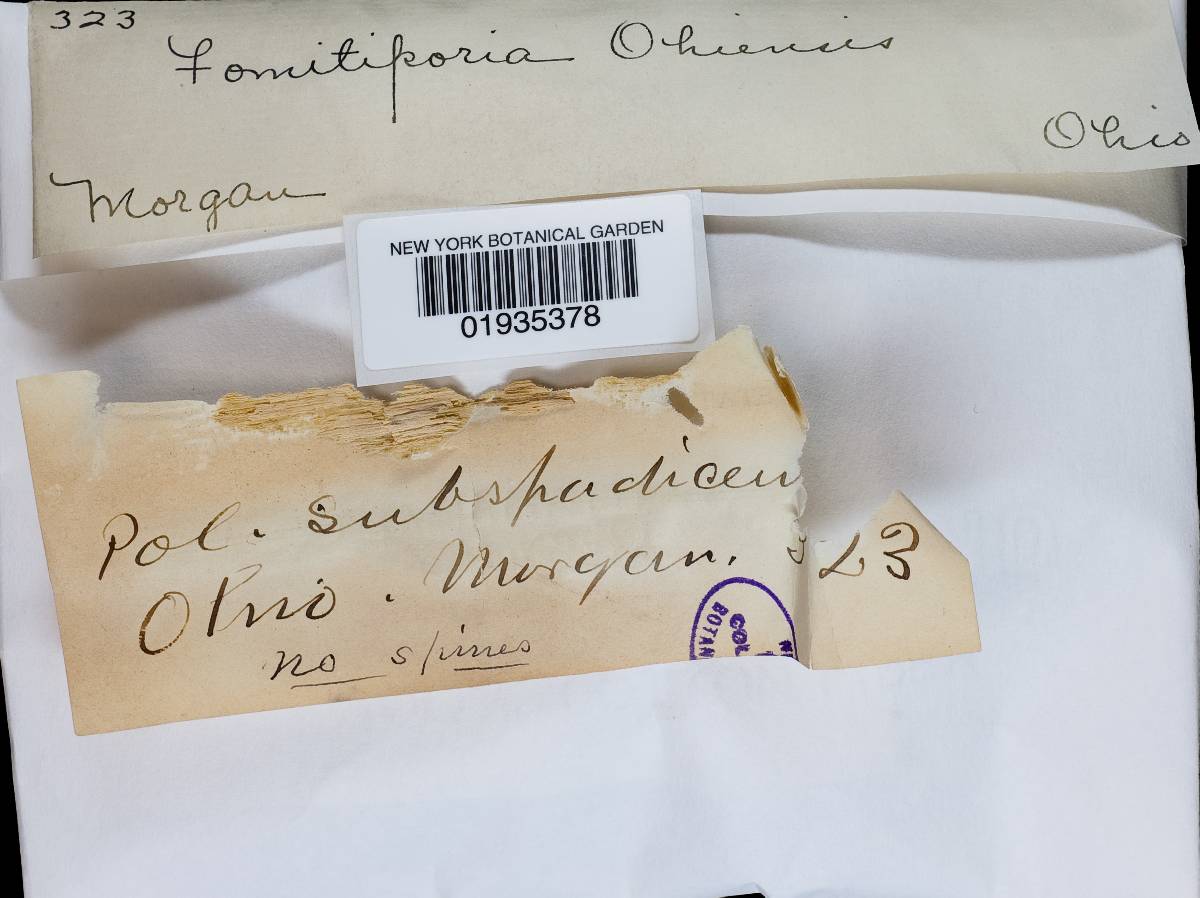 323
Fomitiporia Ohiensis
Ohio
Morgan
NEW YORK BOTANICAL GARDEN
01935378
Pol. subspadiceu
Ohio. Morgan. 323
no spines
BOTAN
COL